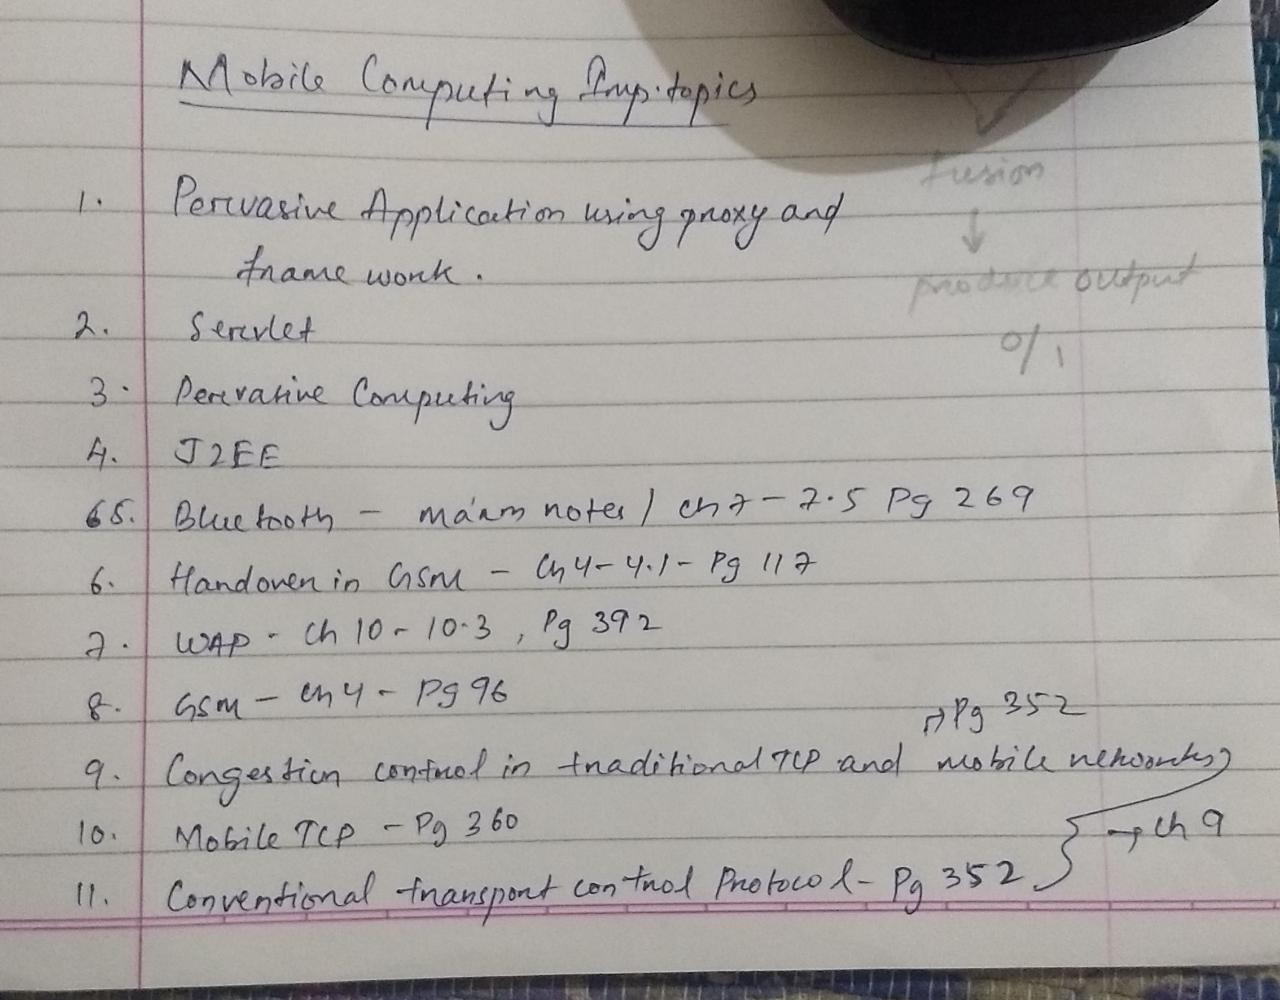 Mobile Computing Imp. topics
1. Pervasive Application using proxy and
frame work.
2. Servlet
3. Pervasive Computing
4. J2EE
65. Bluetooth - ma'am notes / ch 7 - 7.5 Pg 269
6. Handover in GSM - Ch 4 - 4.1 - Pg 117
7. WAP - Ch 10 - 10.3, Pg 392
8. GSM - Ch 4 - Pg 96
→ Pg 352
9. Congestion control in traditional TCP and mobile networks
10. Mobile TCP - Pg 360
→ Ch 9
11. Conventional transport control Protocol - Pg 352
fusion
↓
produce output
0/1